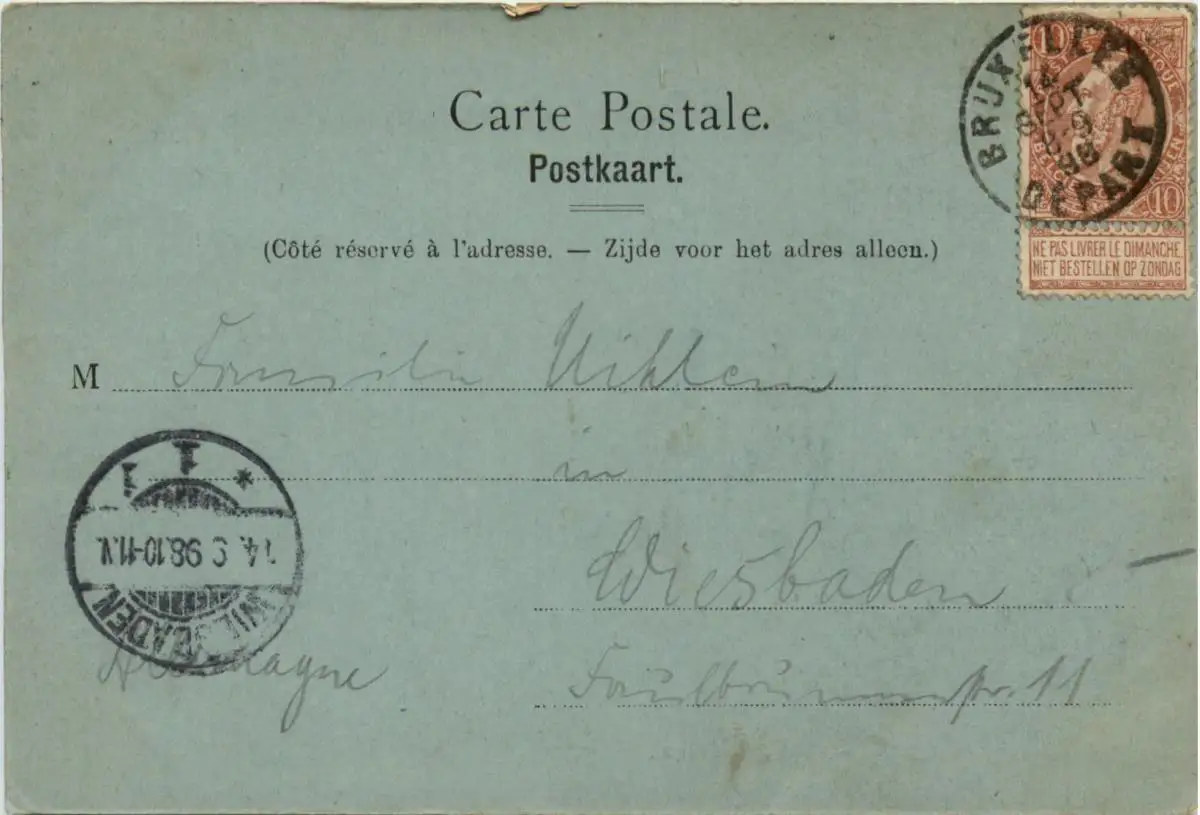 Carte Postale.
Postkaart.
(Côté réservé à l'adresse. — Zijde voor het adres alleen.)
10
10
BRUXELLES
14
SEPT
98
DÉPART
NE PAS LIVRER LE DIMANCHE
NIET BESTELLEN OP ZONDAG
M Familie Uihlein
in
Wiesbaden
Faulbrunnenstr. 11
Allemagne
WIESBADEN
14. 9 98. 10-11. V.
* 1 1